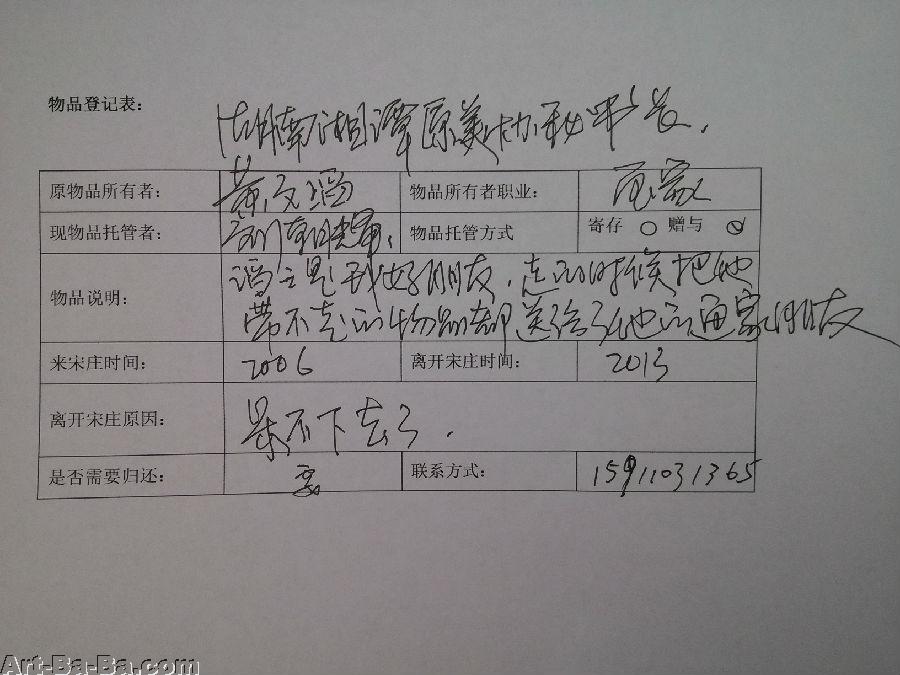 物品登记表:
湖南湘潭原美协秘书长.
原物品所有者: 黄文涵 物品所有者职业: 画家
现物品托管者: 物品托管方式 寄存 赠与
物品说明: 是我好朋友, 走的时候把他
带不走的物品都送给了他的画家朋友
来宋庄时间: 2006 离开宋庄时间: 2013
离开宋庄原因: 呆不下去了.
是否需要归还: 要 联系方式: 15911031365
Art-Ba-Ba.com